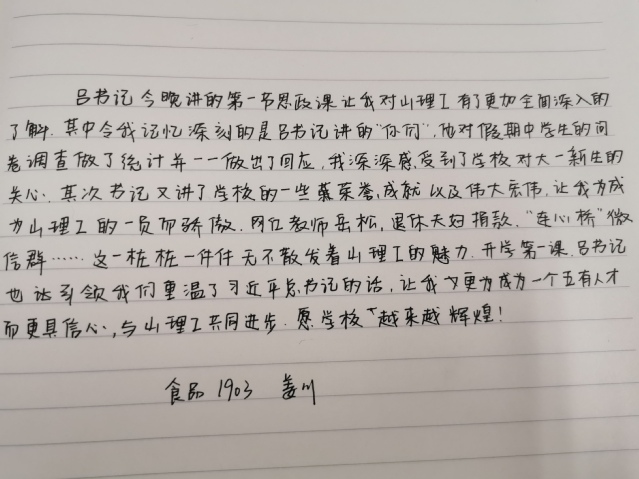 吕书记今晚讲的第一节思政课让我对山理工有了更加全面深入的
了解.其中令我记忆深刻的是吕书记讲的"你问",他对假期中学生的问
卷调查做了统计并一一做出了回应,我深深感受到了学校对大一新生的
关心.其次书记又讲了学校的一些荣誉,成就以及伟大宏伟,让我为成
为山理工的一员而骄傲.网红教师岳松,退休夫妇捐款,"连心桥"微
信群……这一桩桩一件件无不散发着山理工的魅力.开学第一课,吕书记
也带引领我们重温了习近平总书记的话,让我更为成为一个五有人才
而更具信心,与山理工共同进步.愿学校越来越辉煌!
食品1903 姜川